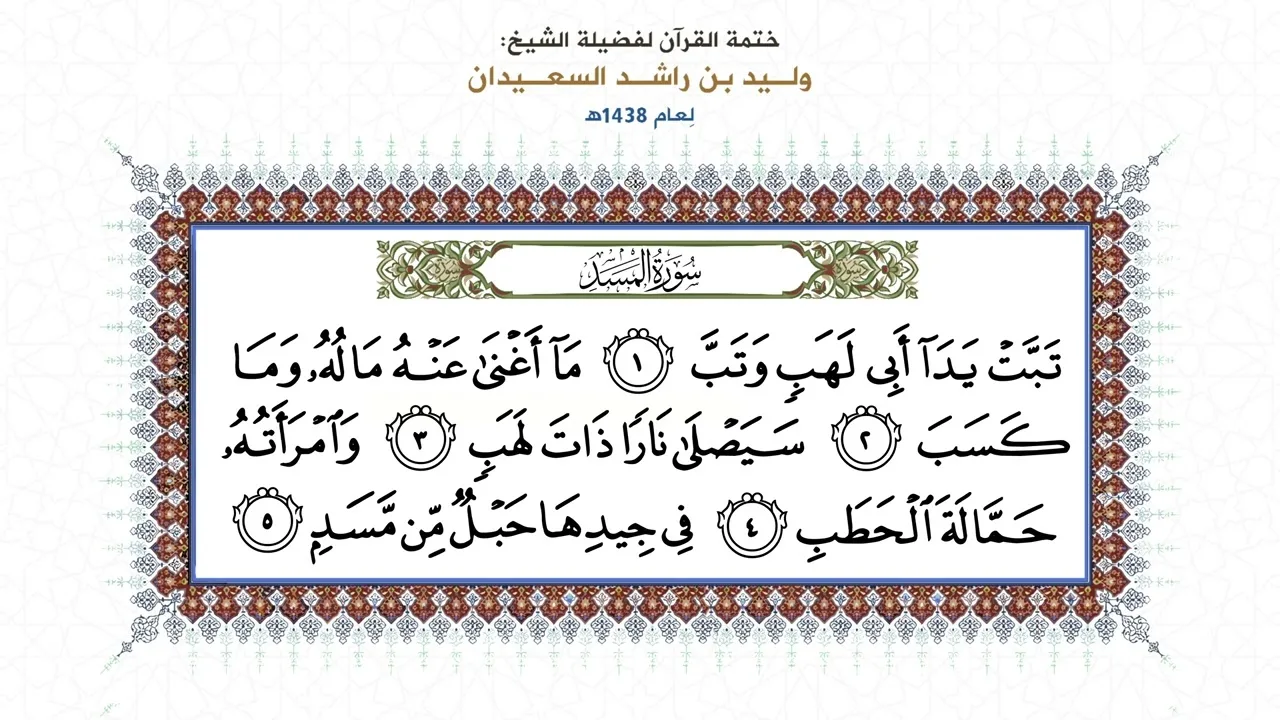 ختمة القرآن لفضيلة الشيخ:
ولـــيد بـن راشــد الســعــيدان
لِعام 1438هـ
سُورَةُ المَسَدِ
تَبَّتۡ يَدَآ أَبِي لَهَبٖ وَتَبَّ ١ مَآ أَغۡنَىٰ عَنۡهُ مَالُهُۥ وَمَا
كَسَبَ ٢ سَيَصۡلَىٰ نَارٗا ذَاتَ لَهَبٖ ٣ وَٱمۡرَأَتُهُۥ
حَمَّالَةَ ٱلۡحَطَبِ ٤ فِي جِيدِهَا حَبۡلٞ مِّن مَّسَدِۭ ٥